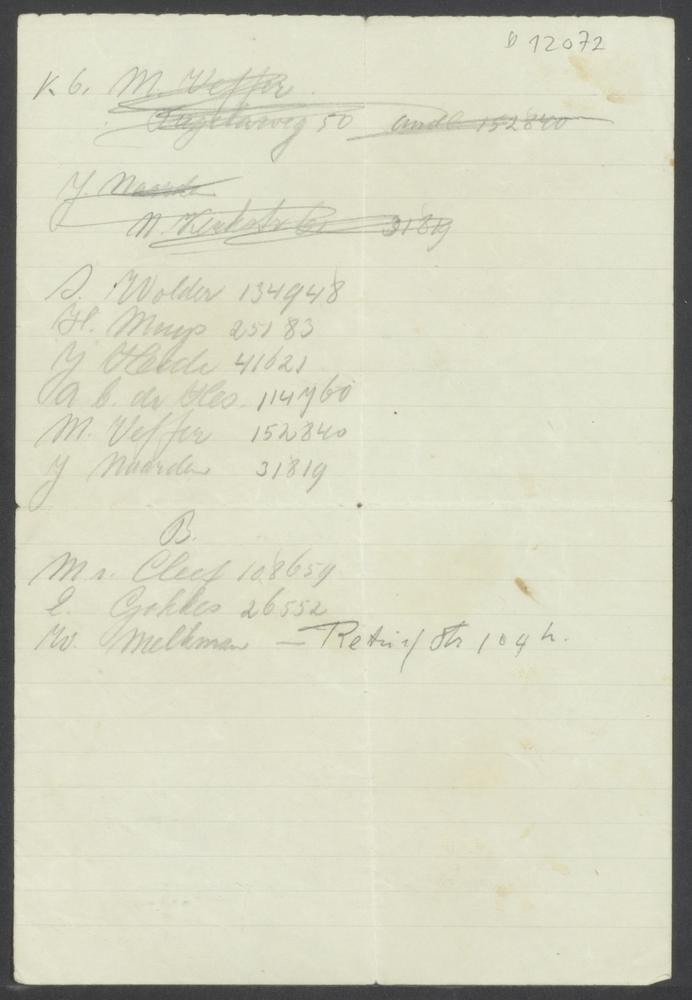 D 12072
K 6. M. Veffer
50 152840
J. Naarden
N. Kerkstr 31819
S. Wolder 134948
H. Muys 25183
J 41621
A b. de Hes. 114760
M. Veffer 152840
J Naarden 31819
B.
M v. Cleef 108659
E. Gokkes 26552
W. Melkman — Str 104 h.